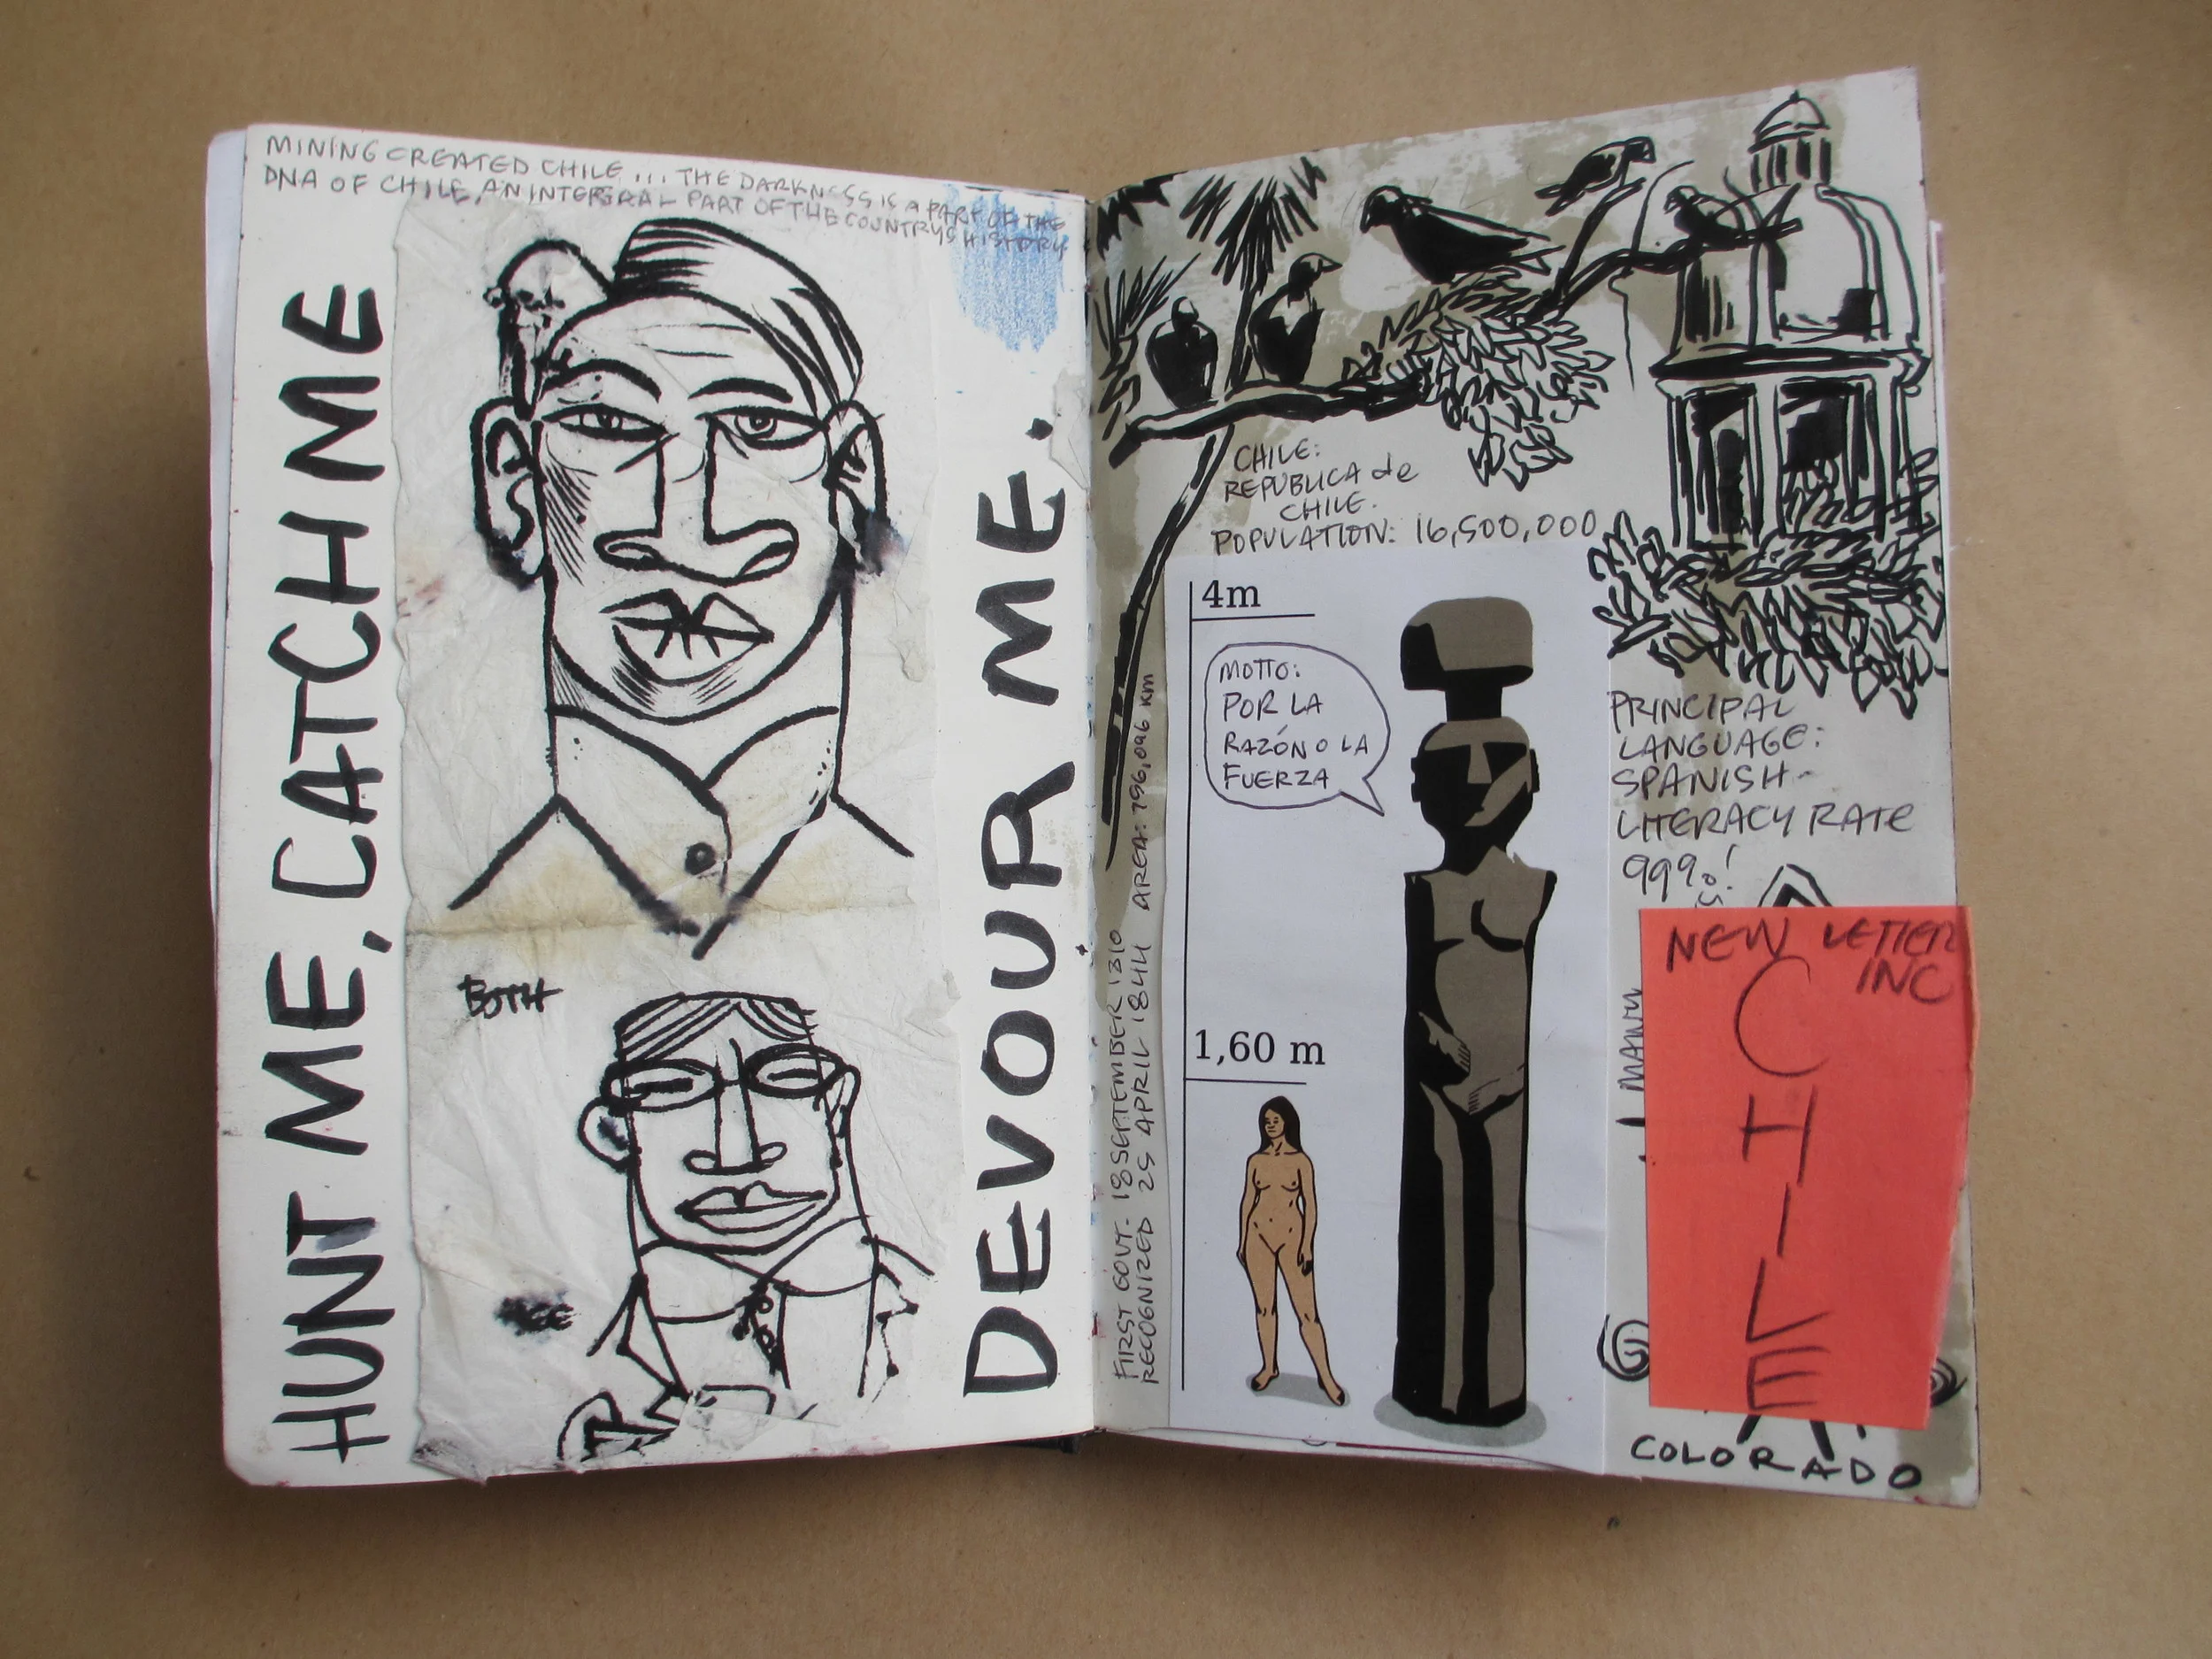 MINING CREATED CHILE ... THE DARKNESS IS A PART OF THE
DNA OF CHILE, AN INTERGRAL PART OF THE COUNTRYS HISTORY.
HUNT ME, CATCH ME
DEVOUR ME.
BOTH
CHILE:
REPÚBLICA de
CHILE.
POPULATION: 16,500,000
4m
MOTTO:
POR LA
RAZÓN O LA
FUERZA
1,60 m
FIRST GOVT. 18 SEPTEMBER 1810
RECOGNIZED 25 APRIL 1844 AREA: 756,096 km
PRINCIPAL
LANGUAGE:
SPANISH-
LITERACY RATE
99%!
NEW LETTER
INC
CHILE
COLORADO